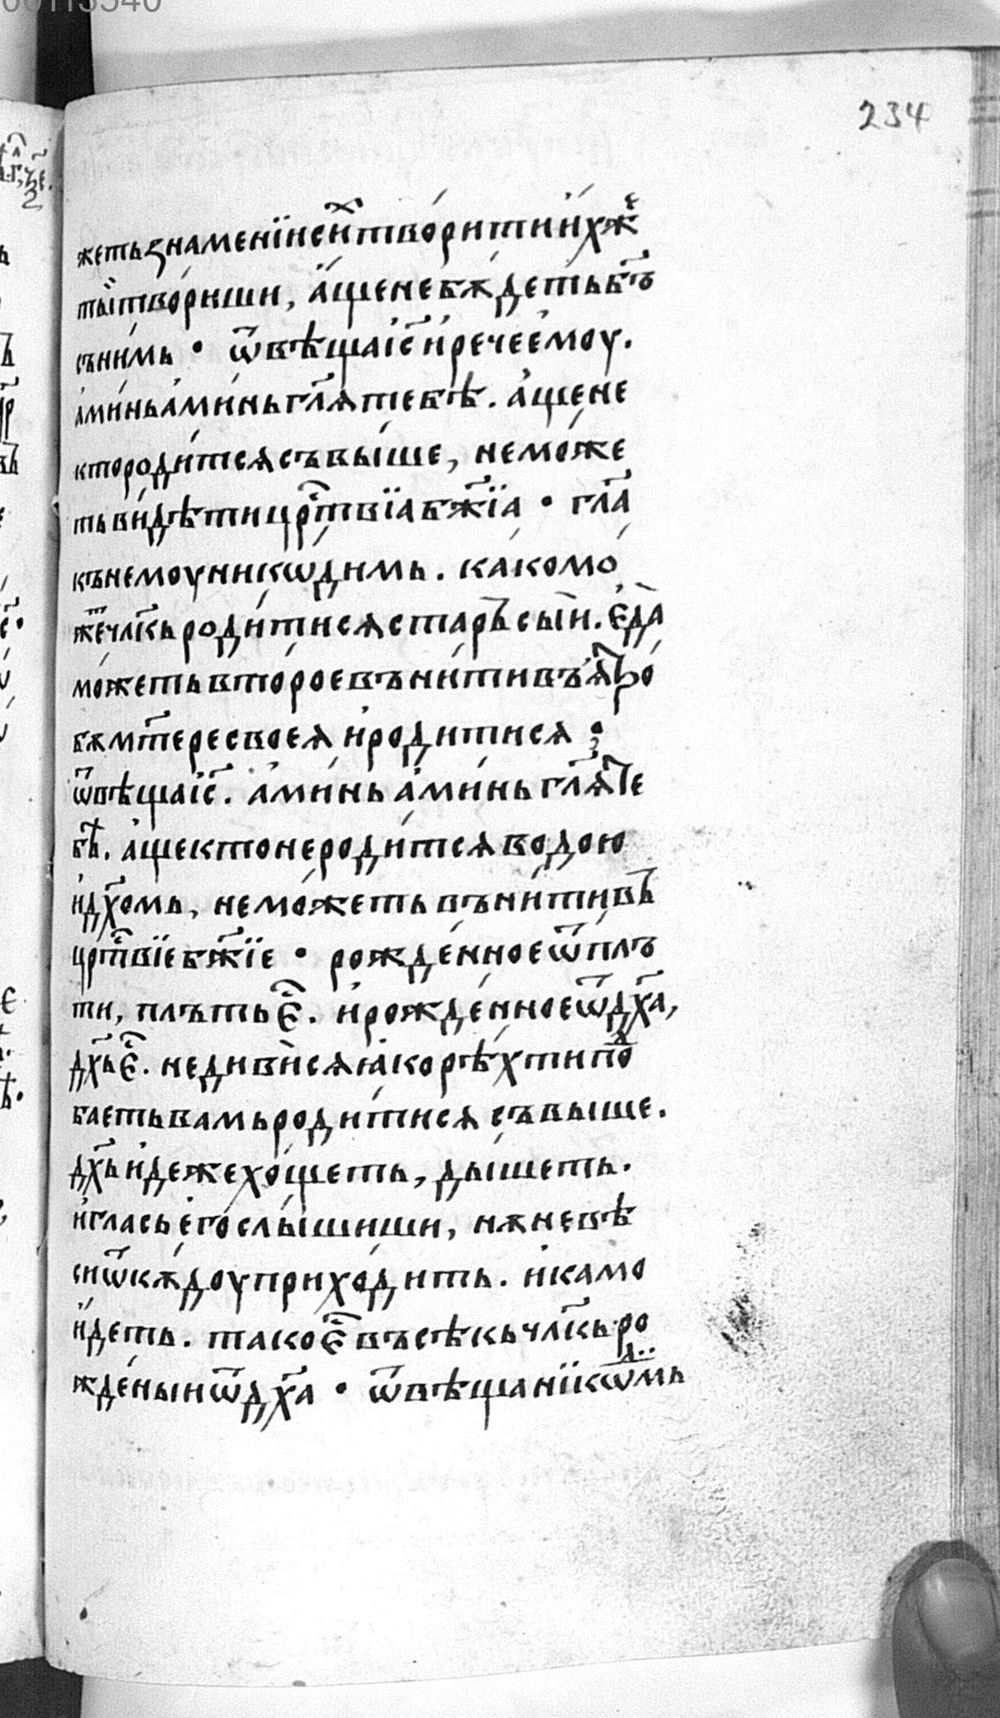 00113540
234
жеть знаменїи сиⷯ творити ихжеⷤ
ты твориши, аще не бѫдеть бъ҃
сънимь • ѿвѣща іс҃ и рече емоу.
аминь аминь гл҃ѧ тебѣ. аще не
кто родитсѧ съвыше, не може
ть видѣти црⷭ҇твїа бж҃їа • гл҃а
къ немоу никѡдимь. како мо
жеⷮ чл҃кь родитисѧ старъ сыи. еда
можеть второе вънити въ ѧтро
бѫ мт҃ере своеѧ и родитисѧ ⁘
ѿвѣща іс҃. аминь аминь гл҃ѧ те
бѣ. аще кто не родитсѧ водою
и дх҃омь, не можеть вънити въ
црⷭ҇твїе бж҃їе • рожденное ѿ плъ
ти, плъть еⷭ҇. и рожденное ѿ дх҃а,
дх҃ь еⷭ҇. не дивисѧ ꙗко рѣх ти поⷣ
баеть вамь родитисѧ съвыше.
дх҃ь идеже хощеть, дышеть.
и глась его слышиши, нѫ не вѣ
си ѿкѫдоу приходить. и камо
идеть. тако еⷭ҇ въсѣкь чл҃кь ро
жденыи ѿ дх҃а • ѿвѣща никѡⷣмь